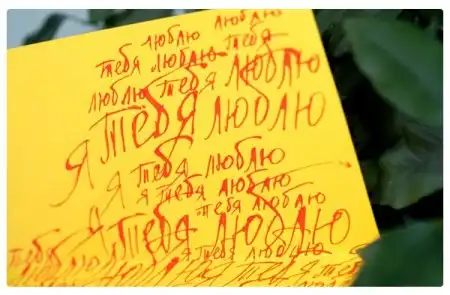 тебя люблю люблю
тебя люблю тебя
люблю тебя люблю
я тебя люблю
я тебя люблю
я тебя люблю
тебя люблю
я тебя люблю
тебя я тебя люблю
люблю тебя тебя